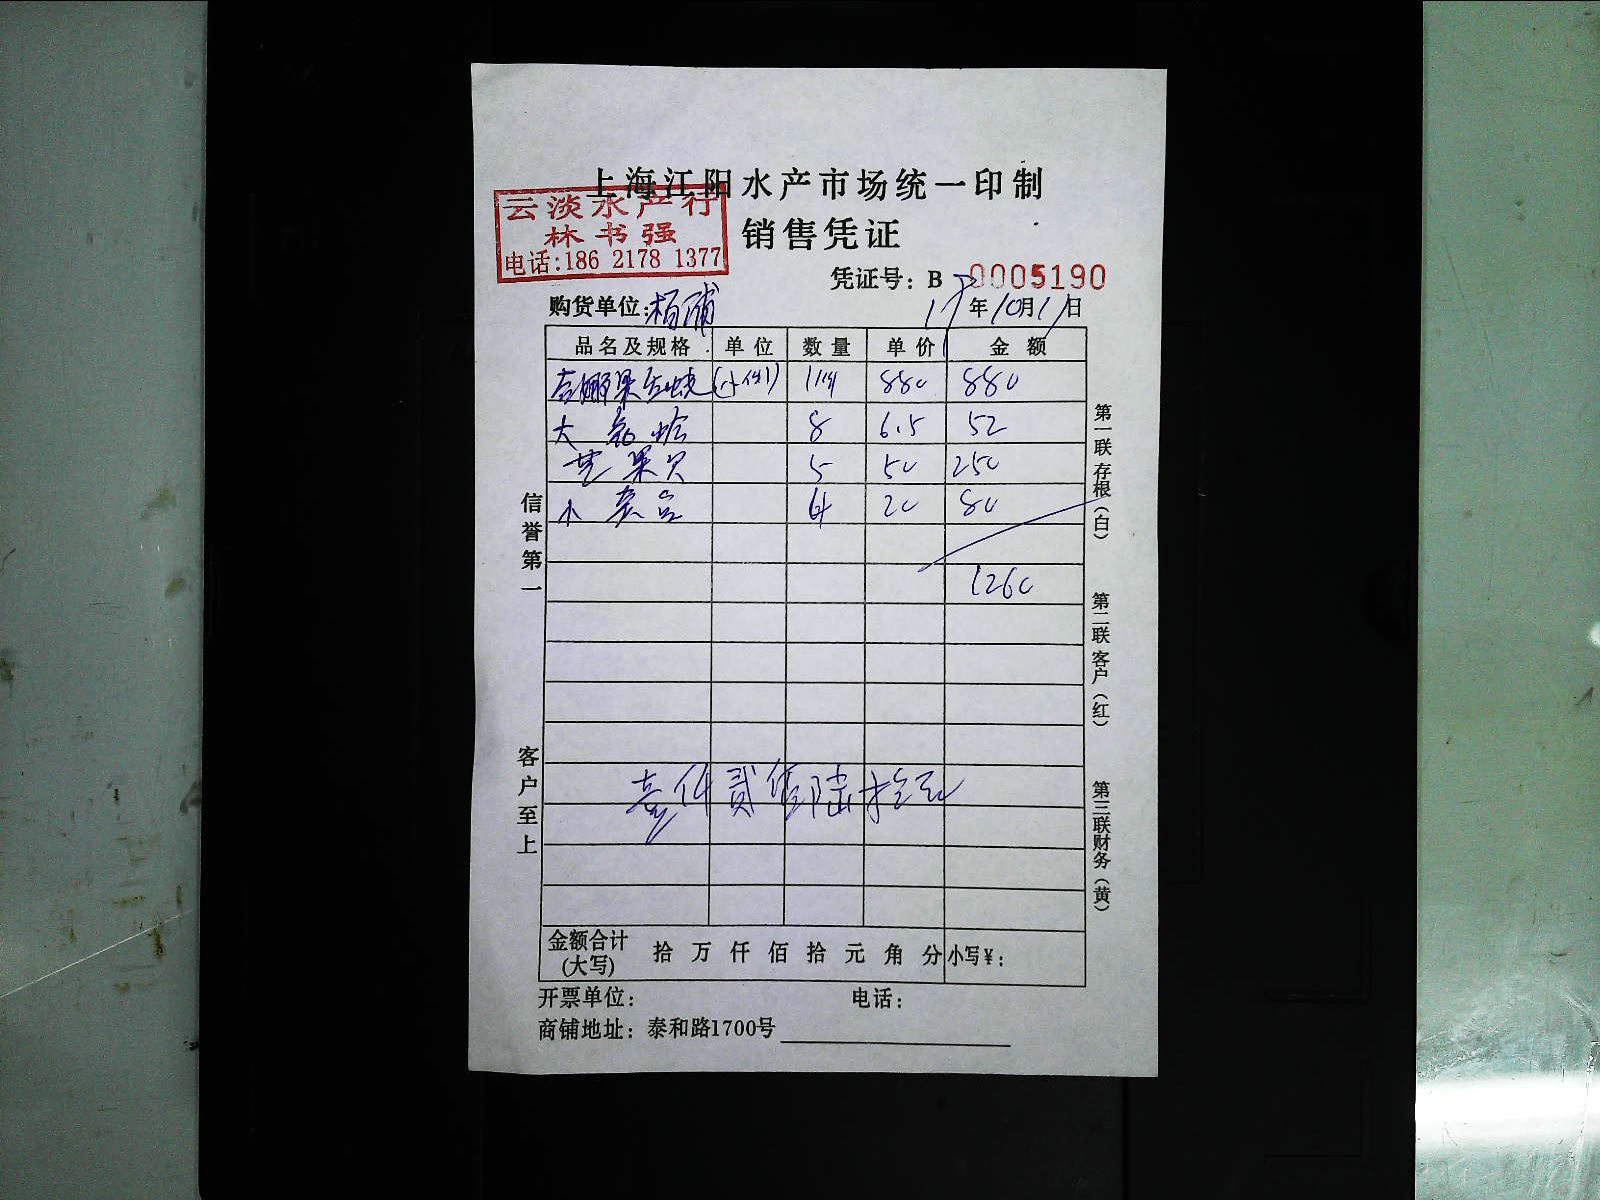 上海江阳水产市场统一印制
云淡水产行
林书强
电话:186 2178 1377
销售凭证
凭证号：B 0005190
购货单位:
年10月11日
品名及规格 单位 数量 单价 金额
880 880
大 蛤 8 6.5 52
苹果贝 5 50 250
小 4 20 80
1260
壹仟贰佰陆拾元
金额合计(大写) 拾 万 仟 佰 拾 元 角 分 小写¥：
开票单位： 电话：
商铺地址：泰和路1700号
信誉第一
客户至上
第一联存根（白）
第二联客户（红）
第三联财务（黄）